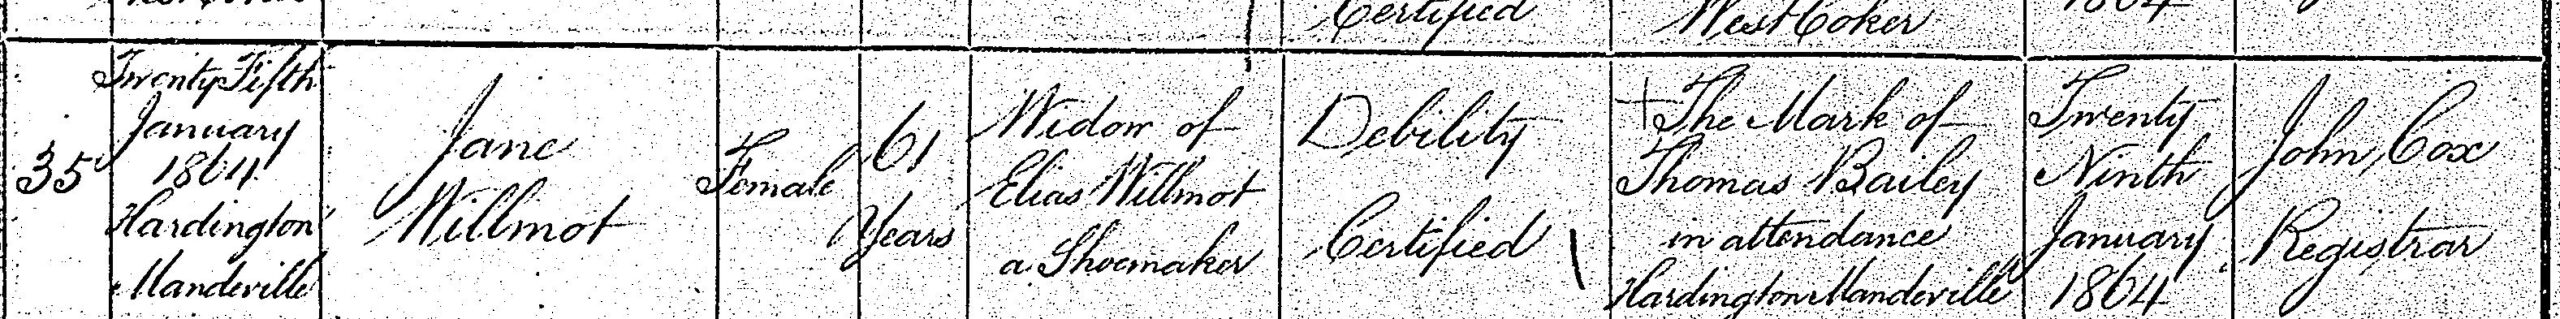 Certified
West Coker
1864
35
Twenty Fifth
January
1864
Hardington
Mandeville
Jane
Willmot
Female
61
Years
Widow of
Elias Willmot
a Shoemaker
Debility
Certified
+ The Mark of
Thomas Bailey
in attendance
Hardington Mandeville
Twenty
Ninth
January
1864
John Cox
Registrar